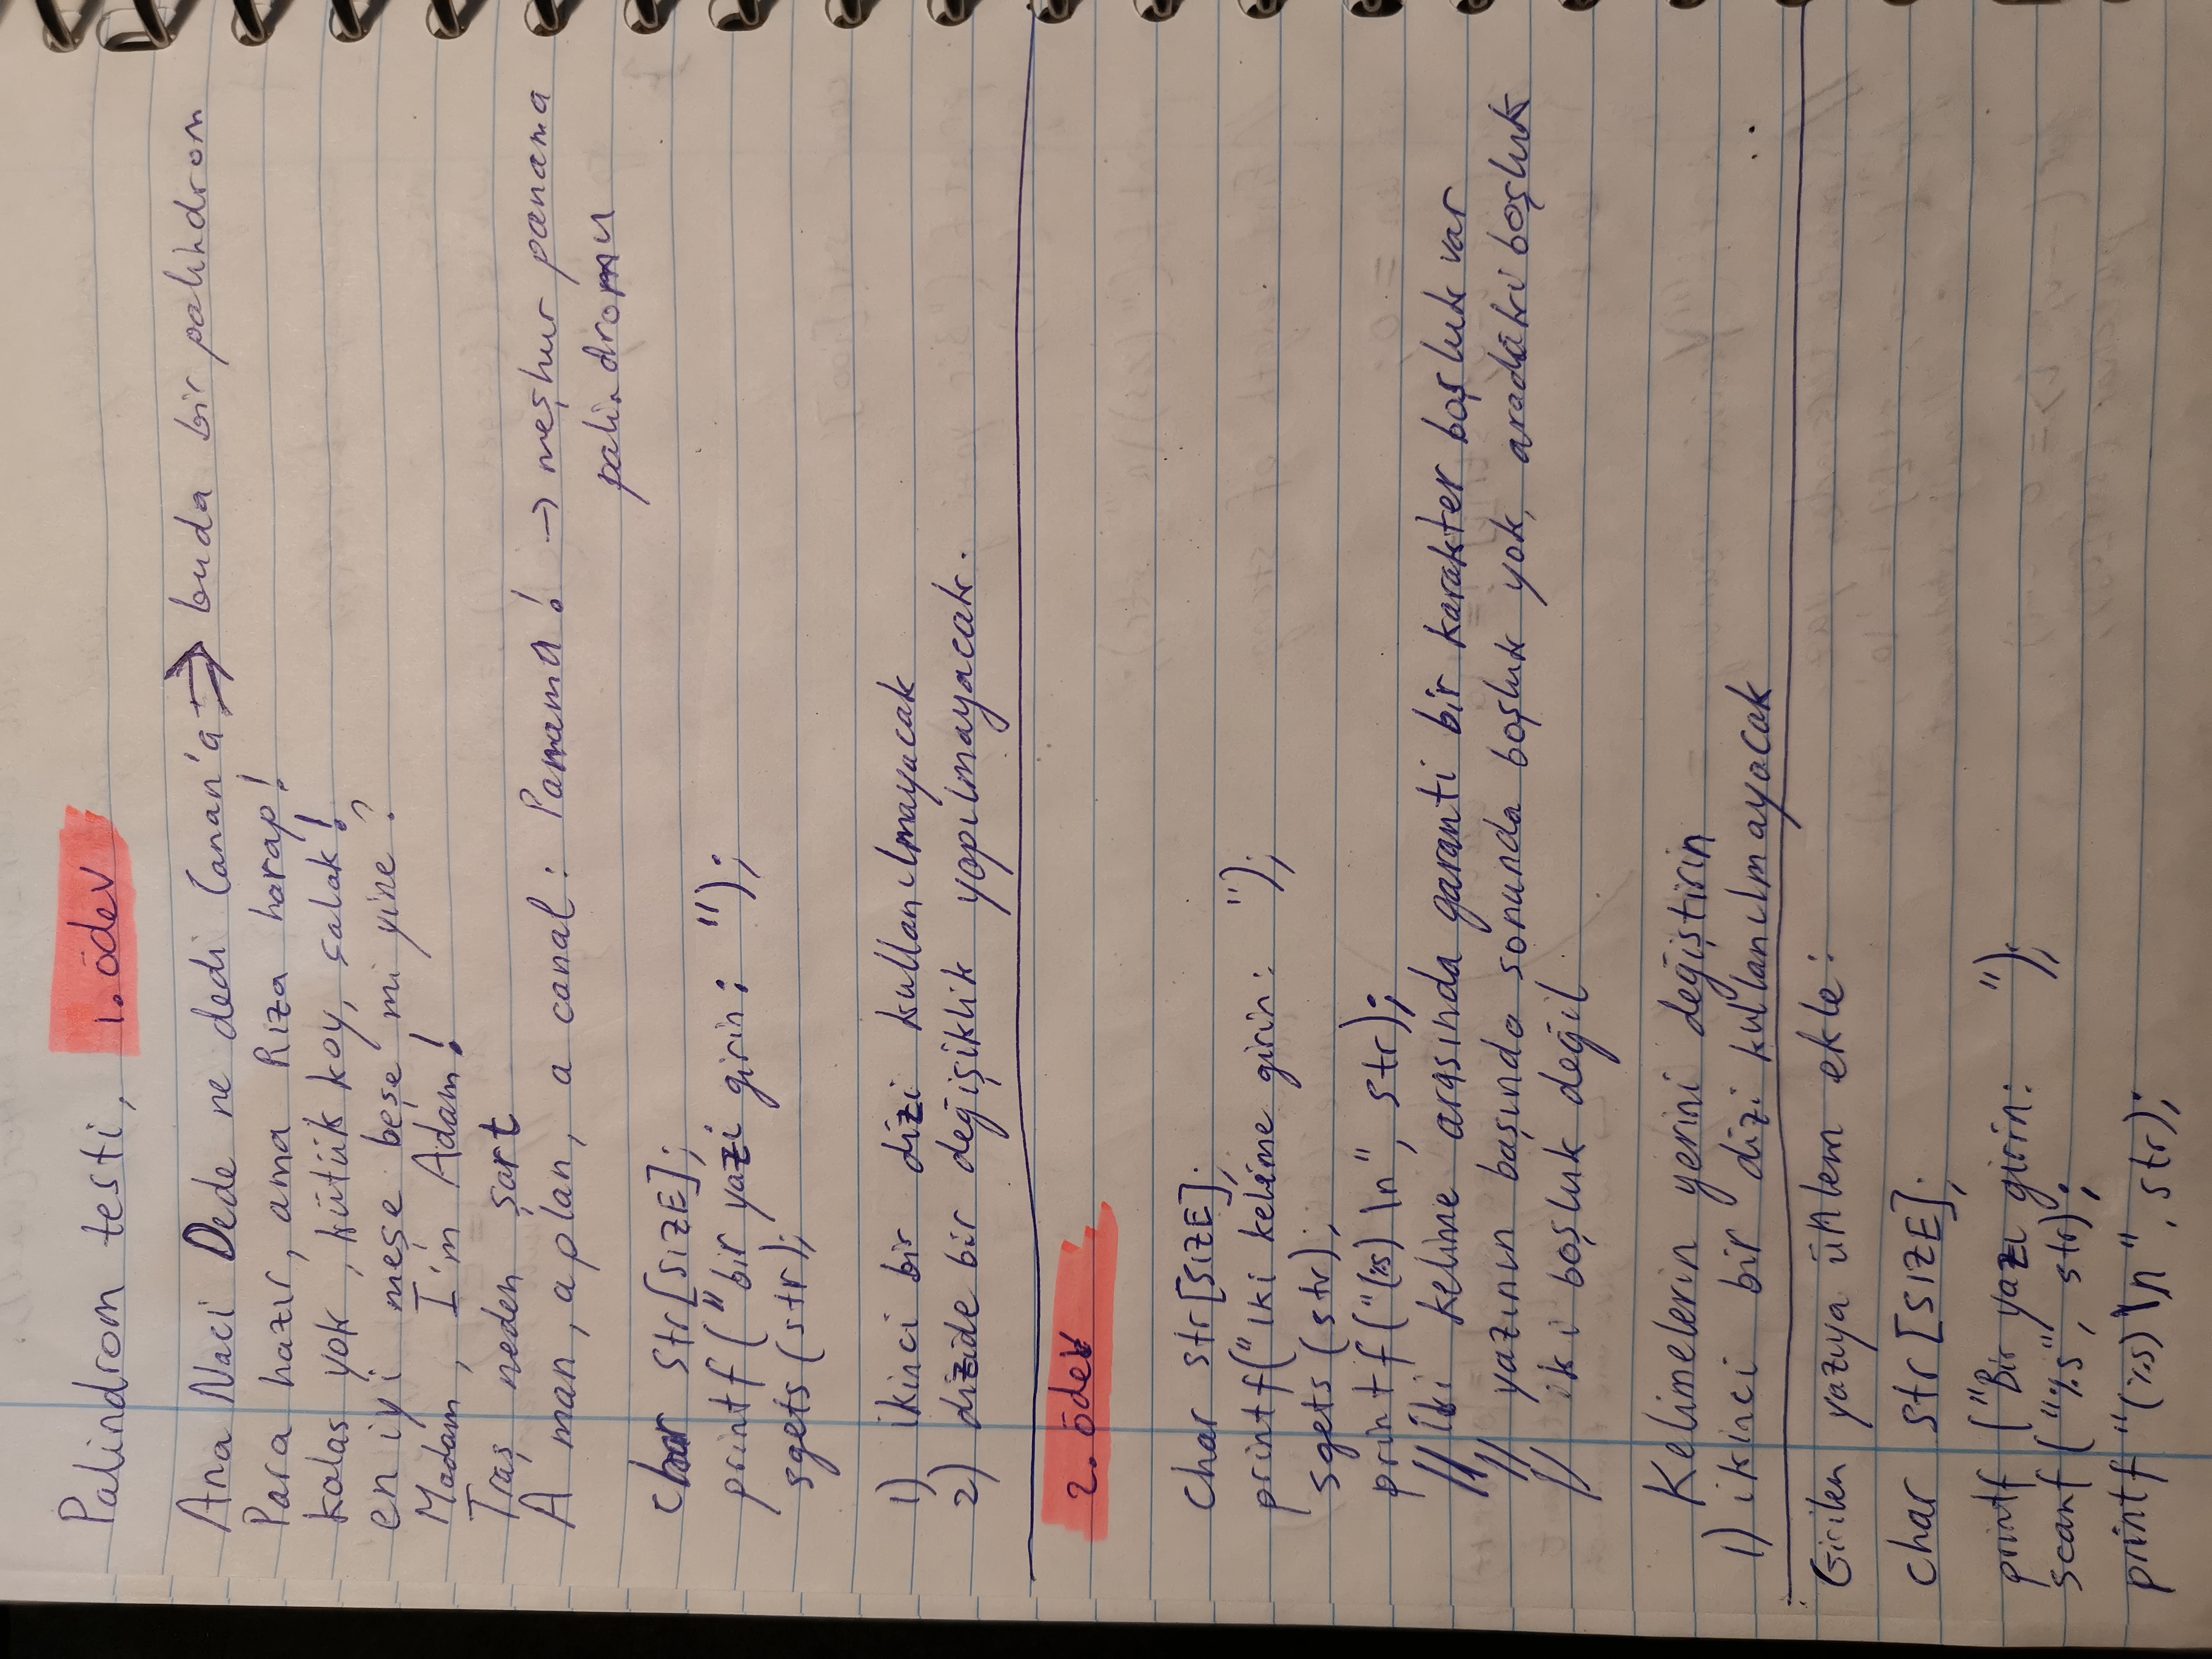 Palindrom testi, 1. ödev
Ana Naci Dede ne dedi Canan'a => buda bir palindrom
Para hazır, ama Rıza harap!
kalas yok, kütük koy, salak!
en iyi meşe beşe mi yine?
Madam, I'm Adam!
Traş neden şart
A man, a plan, a canal: Panama! → meşhur panama
palindromu
char str[SIZE];
printf("bir yazi girin: ");
sgets(str);
1) ikinci bir dizi kullanılmayacak
2) dizide bir değişiklik yapılmayacak.
2. ödev
char str[SIZE];
printf("Iki kelime girin: ");
sgets(str);
printf("(%s)\n", str);
// İki kelime arasında garanti bir karakter boşluk var
// yazının başında sonunda boşluk yok, aradaki boşluk
// iki boşluk değil
Kelimelerin yerini değiştirin
1) ikinci bir dizi kullanılmayacak
Girilen yazıya ünlem ekle:
char str[SIZE];
printf ("Bir yazı girin: ");
scanf("%s", str);
printf "(%s)\n", str);